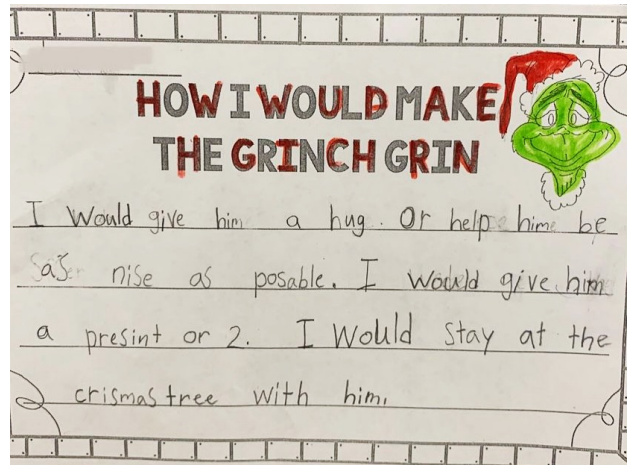 HOW I WOULD MAKE
THE GRINCH GRIN
I Would give him a hug. Or help him be
as nise as posable. I Would give him
a presint or 2. I Would stay at the
crismas tree with him.